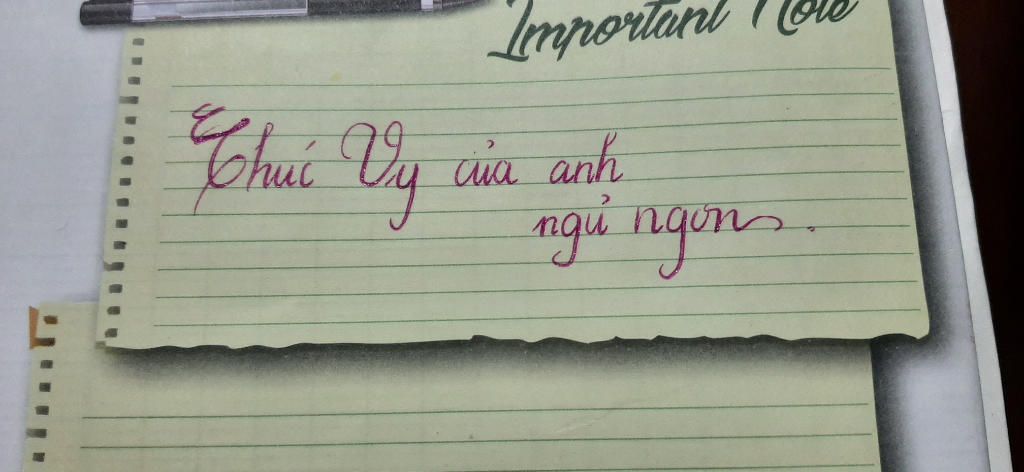 Important Note
Thuć Vy của anh
ngủ ngon.